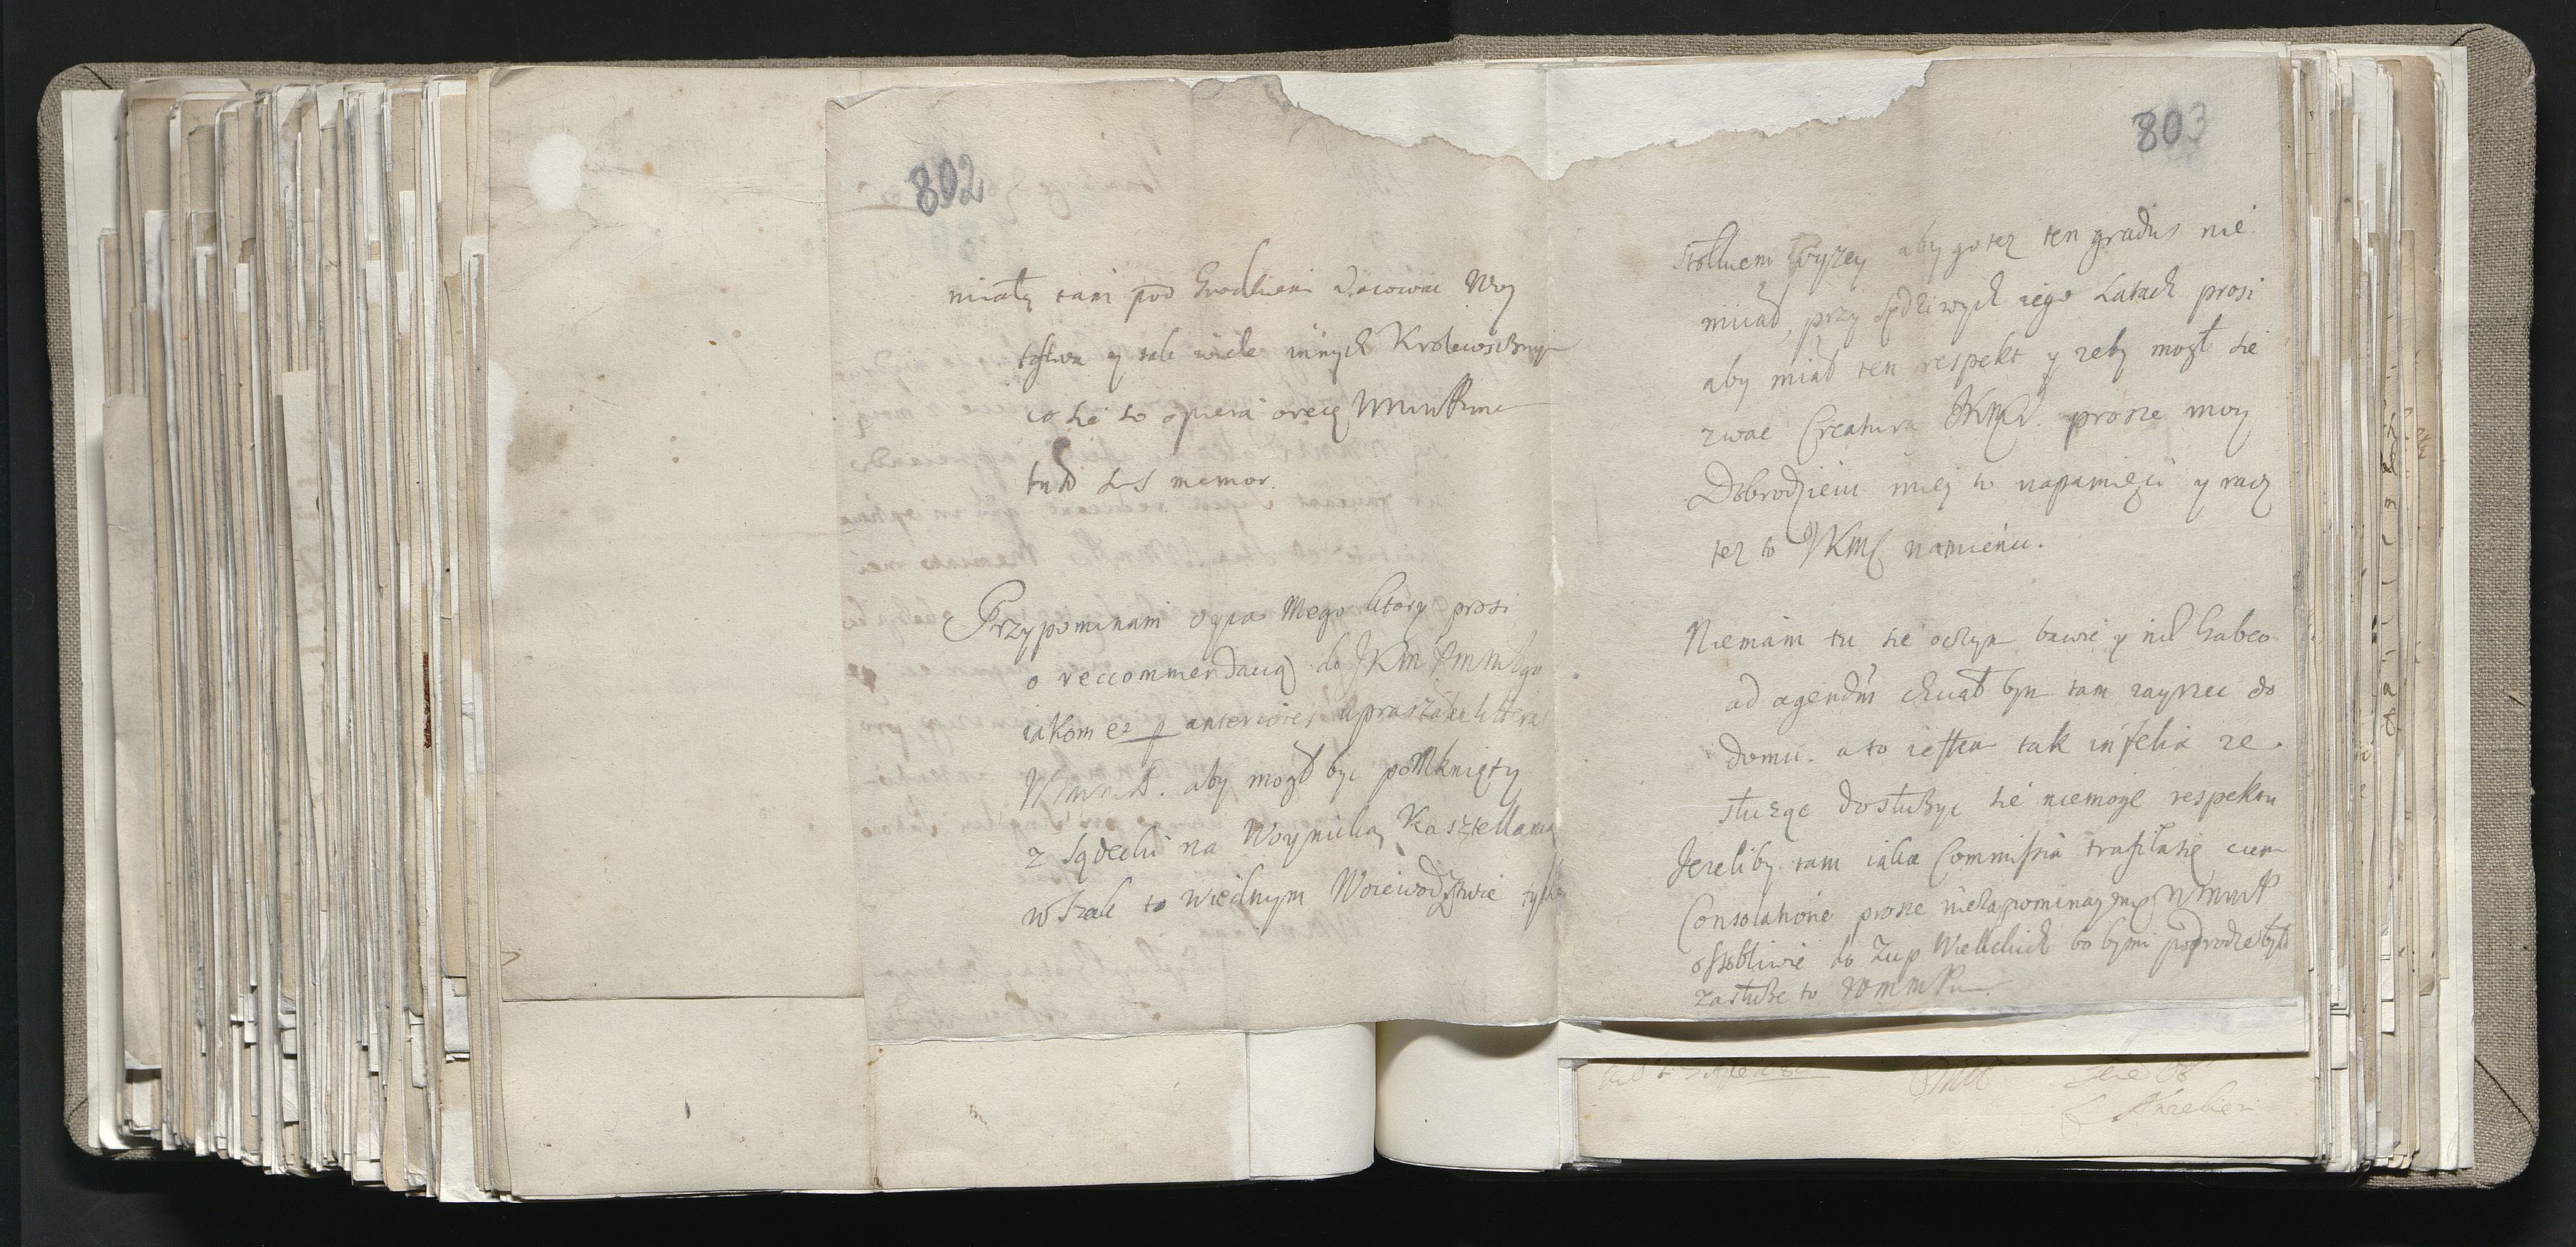 802
miały tam pod Grodkiem Dacowac Woy
tostwa y tak wiele innych Krolewsczyzn
co sie to opiera o ręcę WMM Pana
tudo sis memor.
Przypominam oyca Mego ktory prosi
o reccommendacią do JKM PMMłgo
iakom ez p anteriores upraszał litteras
WMMP. aby mogł byc pomknięty
z Sądecki na Woynicką Kasztellanią
wszak to wiednym Woiewodztwie tylko
803
Stołkiem wyzey aby go tez ten gradus nie
miiał, przy sędziwych iego Latach prosi
aby miał ten respekt y zeby mogł sie
zwac Creaturą JKMCi. prosze moy
Dobrodzieiu miey to napamięci y racz
tez to JKMC namienic.
Niemam tu sie oczym bawic y nil habeo
ad agendum chciał bym tam zayrzec do
domu. a to iestem tak infelix ze
służąc dosłuzyc sie niemogę respektu
Jezeliby tam iaka Commissia trafiła się cum
Consolatione prosze niezapominay mię WMMP
osobliwie do Zup Wielickich bo by mi podrodze było
zasłuzę to WMMPu